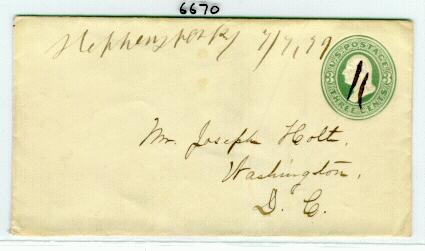 6670
Stephensport Ky 7/7, 79
U.S. POSTAGE
THREE CENTS
Mr. Joseph Holt.
Washington,
D. C.